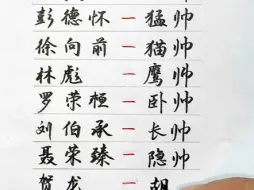 彭德怀一猛帅
徐向前一猫帅
林彪一鹰帅
罗荣桓一卧帅
刘伯承一长帅
聂荣臻一隐帅
贺龙一胡